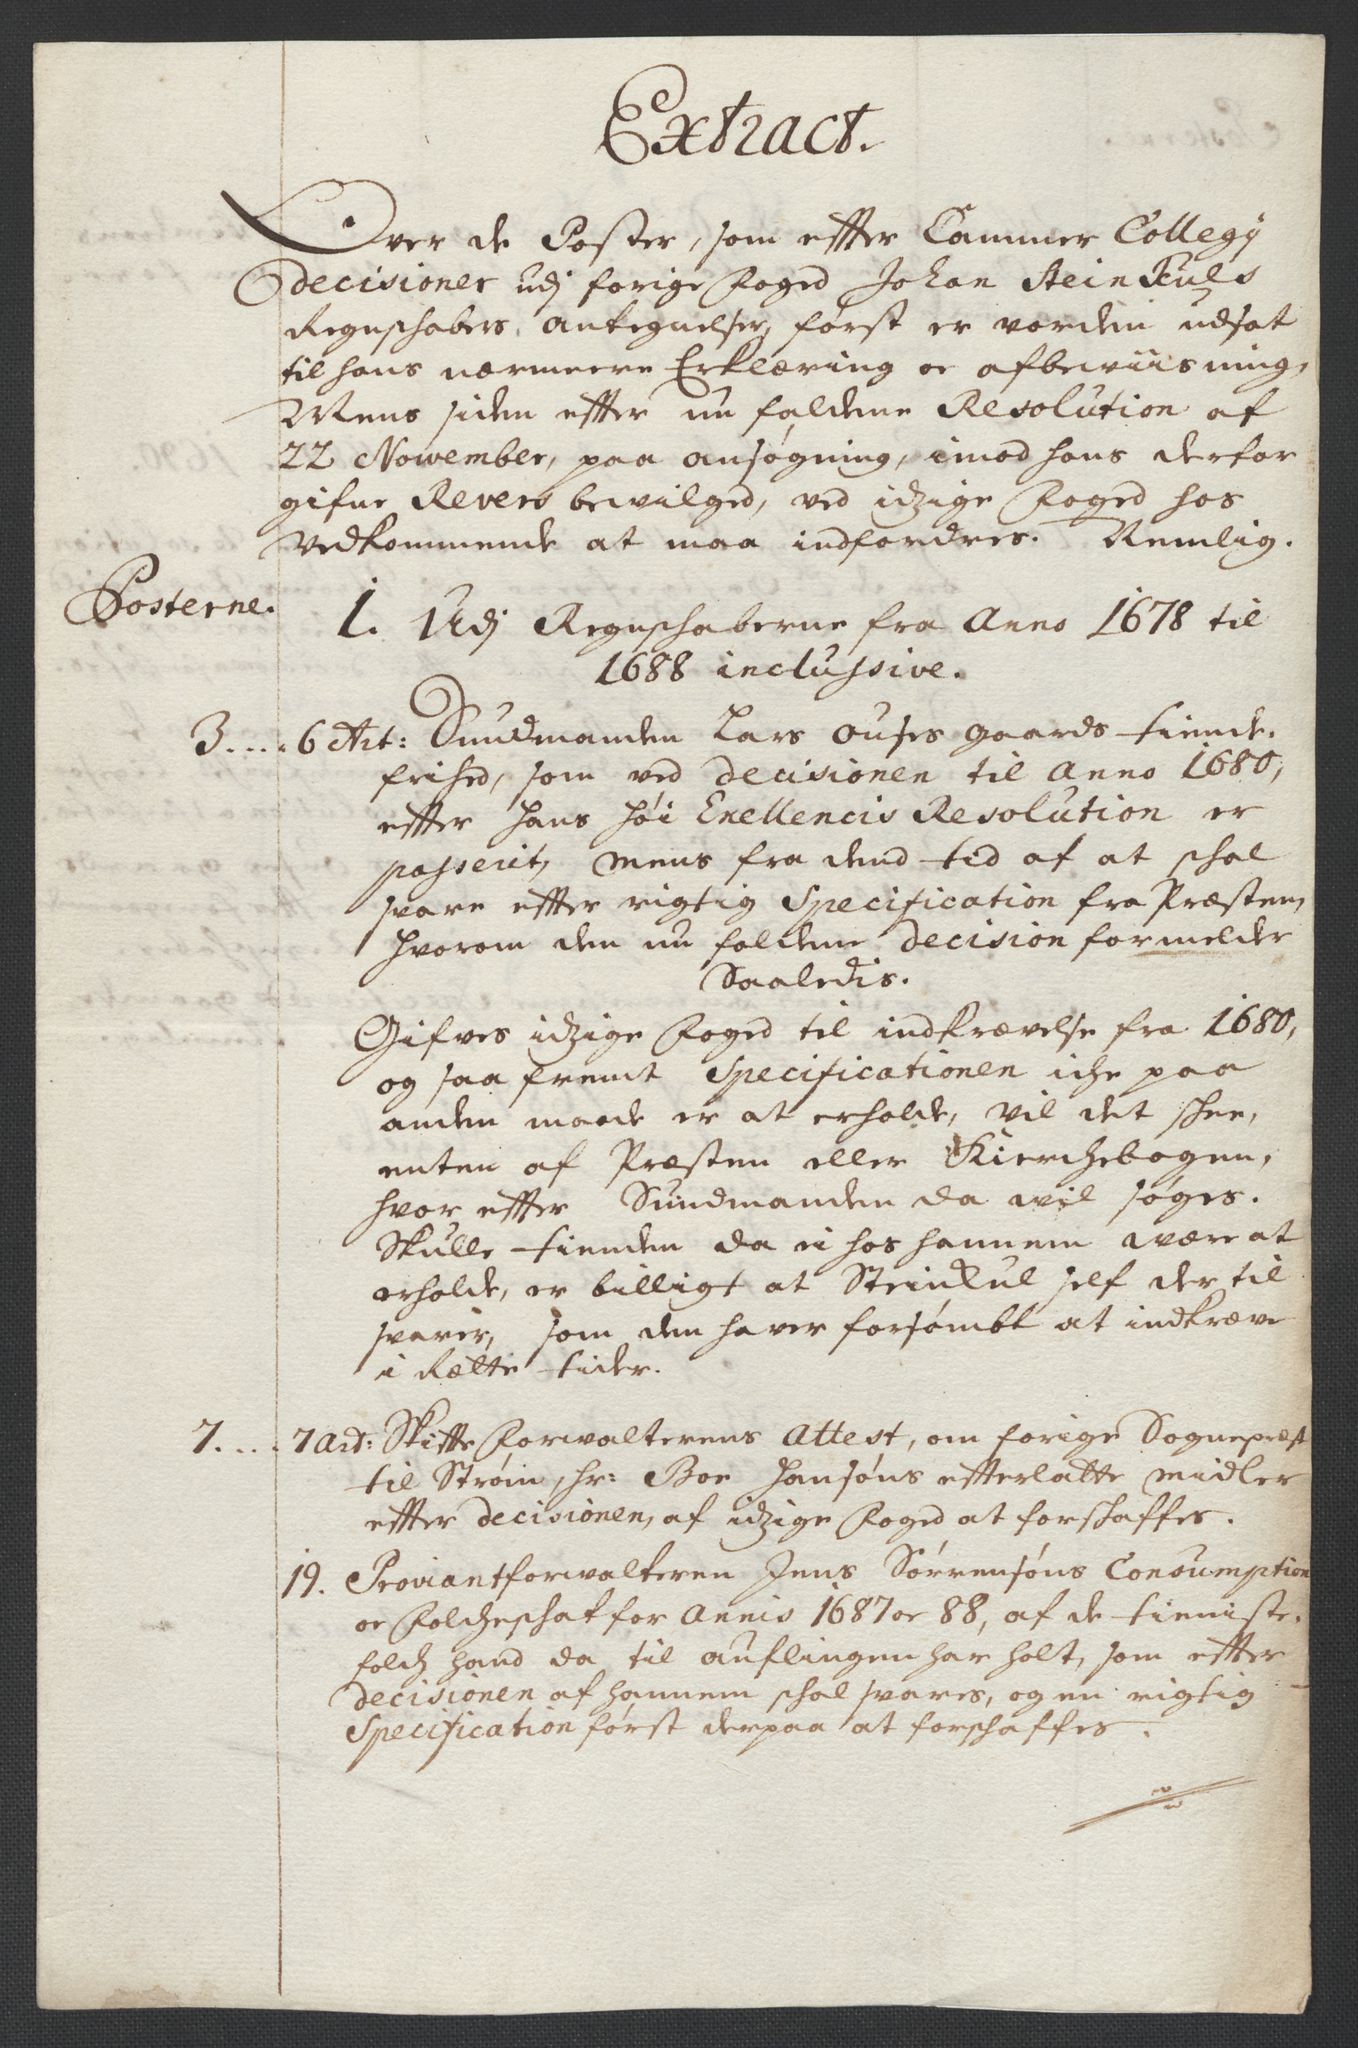 Extract.
Over de Poster, som effter Cammer Collegy
decisioner udj forige Foged Johan Steinkuls
Regnschabers antegnelser, først er worden udsat
til hans nærmere Erklæring oc afbewiisning,
Mens siden effter nu faldene Resolution af
22 Nowember, paa ansøgning, imod hans derfor
gifne Revers bewilged, ved idzige Foged hos
Vedkommende at maa indfordres. Nemlig.
Posterne.
1. Udj Regnschaberne fra Anno 1678 til
1688 inclussive.
3.... 6 Art: Sundmanden Lars Ouses gaards tiende
frihed, som ved decisionen til Anno 1680,
effter hans høi Exellencis Resolution er
passerit, mens fra dend tid af at schal
svare effter rigtig Specification fra Præsten,
hvorom den nu faldene decision formelder
Saaledis.
Gifves idzige Foged til indkrævelse fra 1680,
og saa fremt Specificationen iche paa
anden maade er at erholde, vil det schee,
enten af Præsten eller Kierchebogen,
hvor effter Sundmanden da wil søges.
Skulle tienden da ei hos hannem være at
erholde, er billigt at Steinkul self der til
svarer, som den haver forsømbt at indkræve
i Rætte tider.
7.... 7 Art: Skiffte Forwalterens Attest, om forige Sognepræst
til Strøm, hr: Boe Hansøns efterlatte midler
effter decisionen, af idzige Foged at forschaffes.
19. Proviantforwalteren Jens Sørrensøns Consumption
oc Folcheschat for Annis 1687 oc 88, af de tieniste
folch hand da til auflingen har holt, som effter
decisionen af hannem schal svares, og en rigtig
Specification først derpaa at forschaffes.